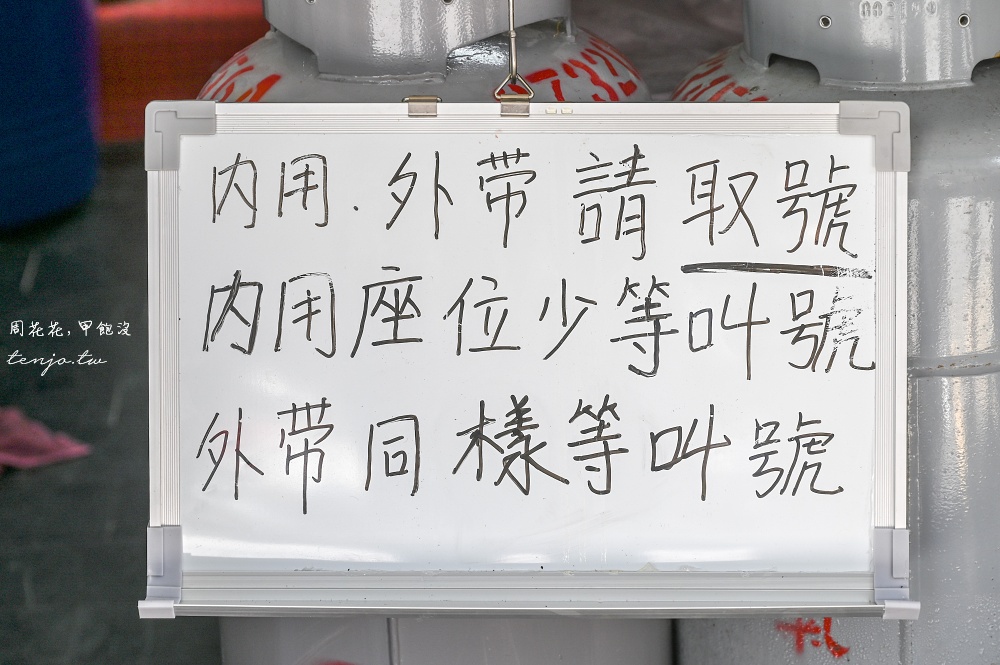 内用.外带請取號
内用座位少等叫號
外带同樣等叫號
周花花,甲飽沒
tenjo.tw